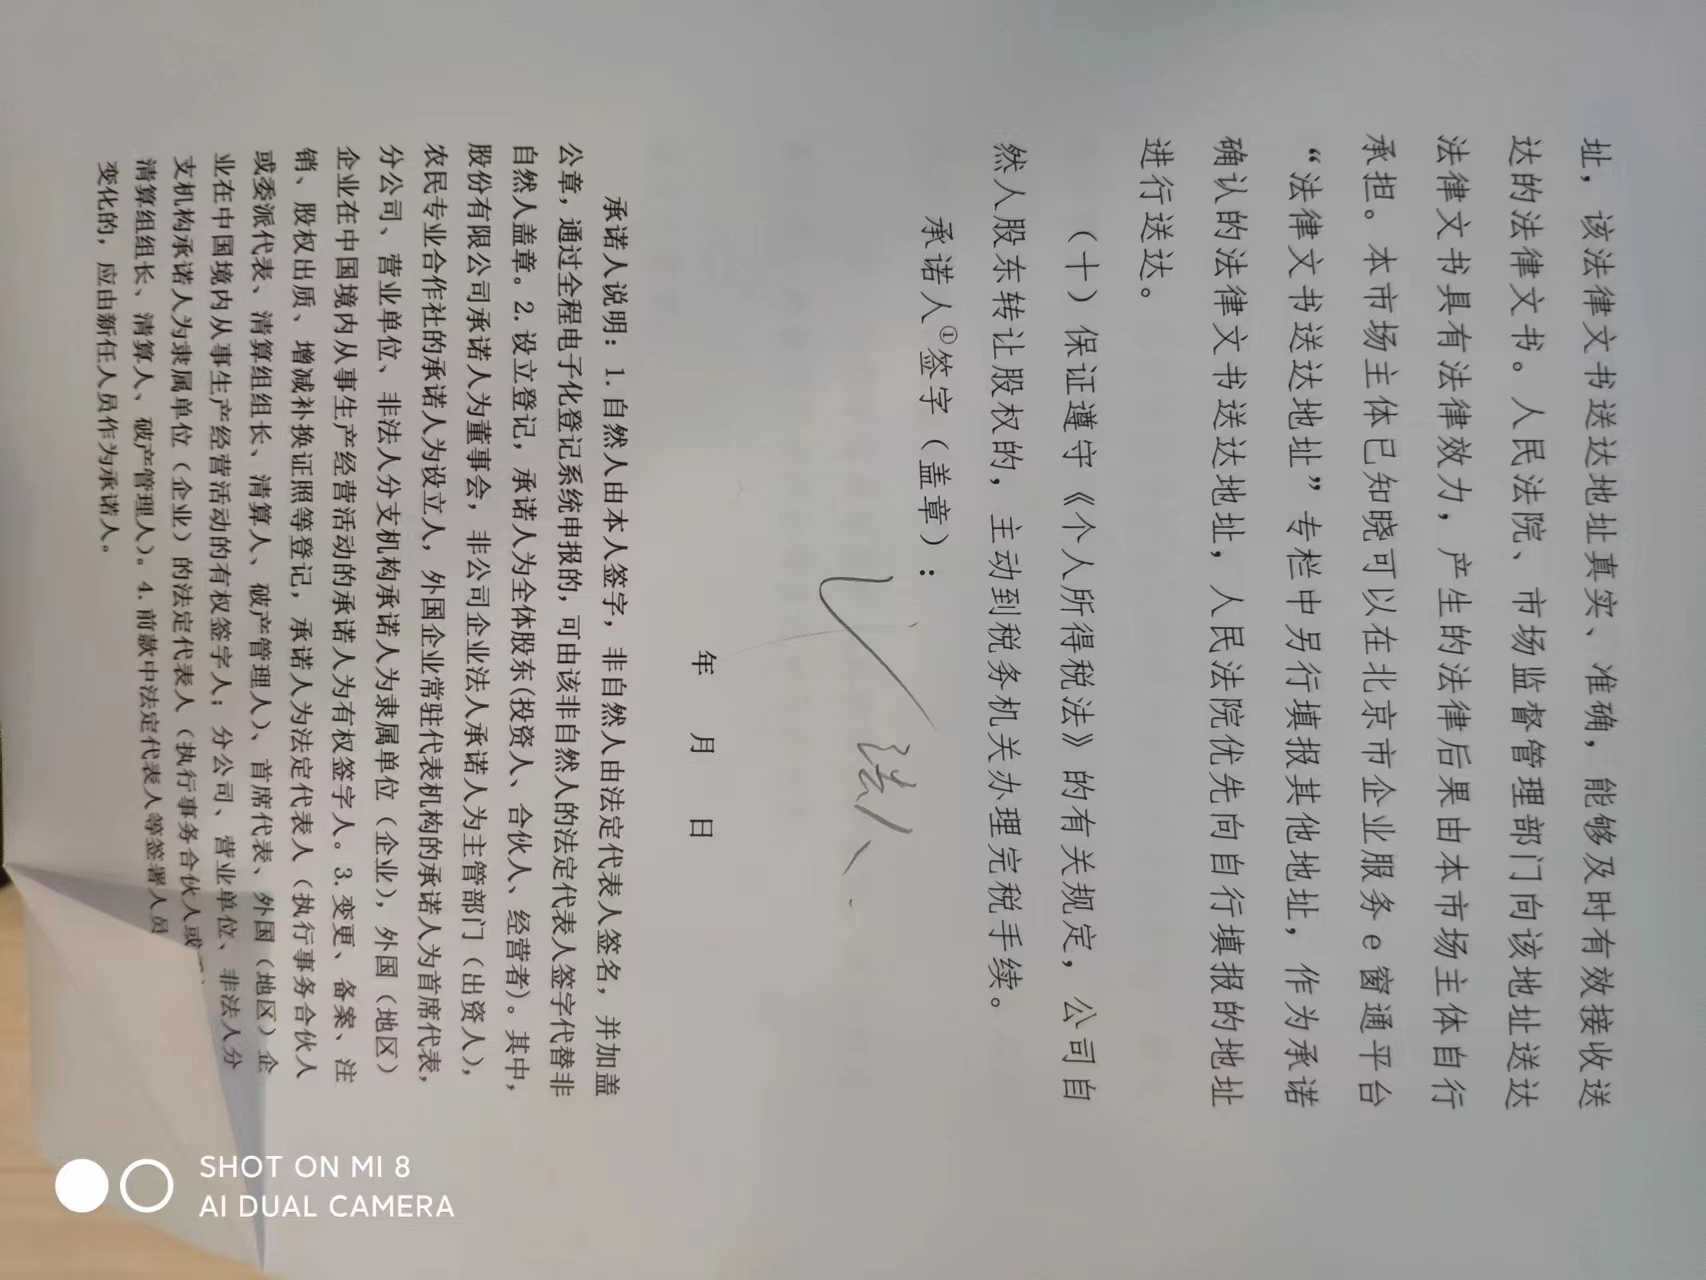 址，该法律文书送达地址真实、准确，能够及时有效接收送
达的法律文书。人民法院、市场监督管理部门向该地址送达
法律文书具有法律效力，产生的法律后果由本市场主体自行
承担。本市场主体已知晓可以在北京市企业服务e窗通平台
“法律文书送达地址”专栏中另行填报其他地址，作为承诺
确认的法律文书送达地址，人民法院优先向自行填报的地址
进行送达。
（十）保证遵守《个人所得税法》的有关规定，公司自
然人股东转让股权的，主动到税务机关办理完税手续。
承诺人①签字（盖章）：
法人
年 月 日
承诺人说明：1.自然人由本人签字，非自然人由法定代表人签名，并加盖
公章，通过全程电子化登记系统申报的，可由该非自然人的法定代表人签字代替非
自然人盖章。2.设立登记，承诺人为全体股东(投资人、合伙人、经营者)。其中，
股份有限公司承诺人为董事会，非公司企业法人承诺人为主管部门（出资人），
农民专业合作社的承诺人为设立人，外国企业常驻代表机构的承诺人为首席代表，
分公司、营业单位、非法人分支机构承诺人为隶属单位（企业），外国（地区）
企业在中国境内从事生产经营活动的承诺人为有权签字人。3.变更、备案、注
销、股权出质、增减补换证照等登记，承诺人为法定代表人（执行事务合伙人
或委派代表、清算组组长、清算人、破产管理人）、首席代表、外国（地区）企
业在中国境内从事生产经营活动的有权签字人；分公司、营业单位、非法人分
支机构承诺人为隶属单位（企业）的法定代表人（执行事务合伙人或
清算组组长、清算人、破产管理人）。4.前款中法定代表人等签署人员
变化的，应由新任人员作为承诺人。
SHOT ON MI 8
AI DUAL CAMERA